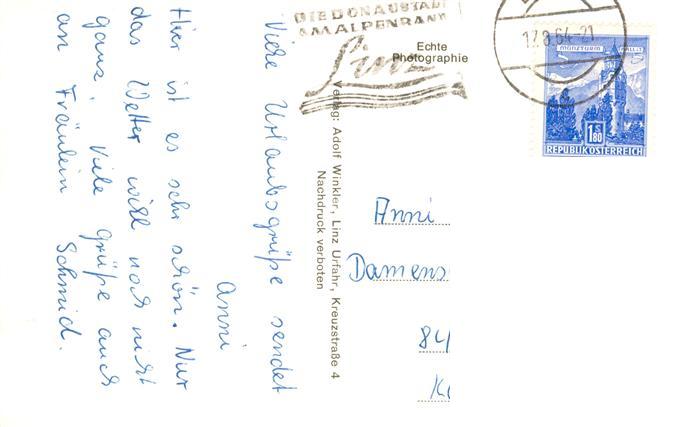 Viele Urlaubsgrüße sendet
Anni
Hier ist es sehr schön. Nur
das Wetter will noch nicht
ganz. Viele Grüße auch
an Fräulein Schmid.
DIE DONAUSTADT
AM ALPENRAND
Linz
Echte
Photographie
Verlag: Adolf Winkler, Linz Urfahr, Kreuzstraße 4
Nachdruck verboten
MÜNZTURM HALL I. T.
1 S 80
REPUBLIK ÖSTERREICH
Anni
Damens
84